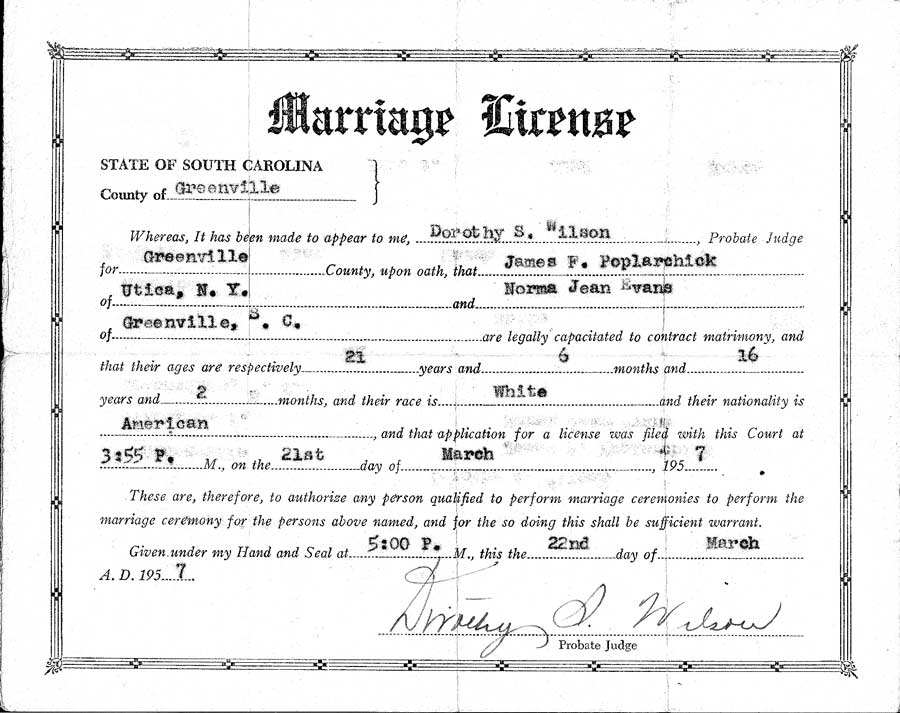 Marriage License
STATE OF SOUTH CAROLINA
County of Greenville
Whereas, It has been made to appear to me, Dorothy S. Wilson, Probate Judge
for Greenville County, upon oath, that James F. Poplarchick
of Utica, N. Y. and Norma Jean Evans
of Greenville, S. C. are legally capacitated to contract matrimony, and
that their ages are respectively 21 years and 6 months and 16
years and 2 months, and their race is White and their nationality is
American, and that application for a license was filed with this Court at
3:55 P. M., on the 21st day of March, 195 7
These are, therefore, to authorize any person qualified to perform marriage ceremonies to perform the
marriage ceremony for the persons above named, and for the so doing this shall be sufficient warrant.
Given under my Hand and Seal at 5:00 P. M., this the 22nd day of March
A. D. 195 7.
Dorothy S. Wilson
Probate Judge